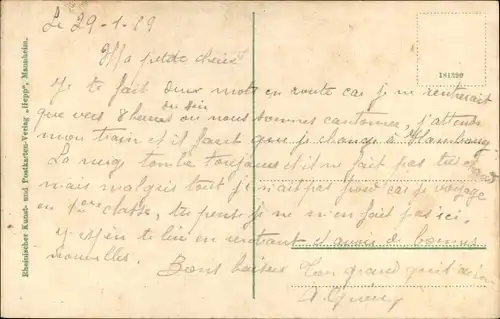 Le 29-1-19
Ma petite chérie
Je te fait deux mots en route car je ne rentrerait
que vers 8 heures du soir ou nous sommes cantonnés, j'attends
mon train et il faut que je change à
La neige tombe toujours et il ne fait pas chaud
mais malgré tout je n'ai pas froid car je voyage
en 1ere classe, tu peut je ne m'en fait pas ici.
J'espère te lire en rentrant et avoir de bonnes
nouvelles. Bons baisers Ton grand qui t'aime
A.
181390
Rheinischer Kunst- und Postkarten-Verlag „Hepp", Mannheim.